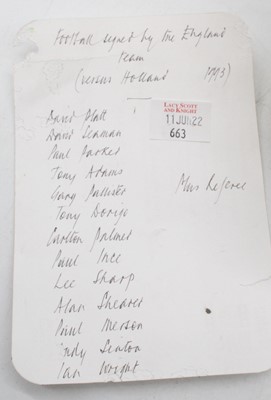 Football signed by the England
team
(versus Holland 1993)
David Platt
David Seaman
Paul Parker
Tony Adams
Gary Pallister
Tony Dorigo
Carlton Palmer
Paul Ince
Lee Sharp
Alan Shearer
Paul Merson
Andy Sinton
Ian Wright
Plus Referee
LACY SCOTT
AND KNIGHT
11 JUN 22
663